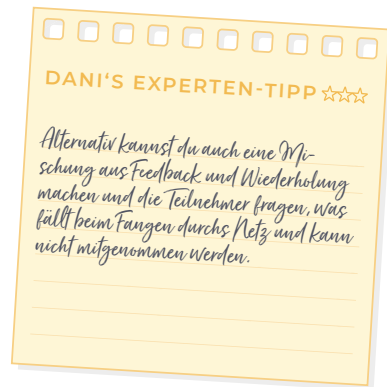 DANI'S EXPERTEN-TIPP
Alternativ kannst du auch eine Mi-
schung aus Feedback und Wiederholung
machen und die Teilnehmer fragen, was
fällt beim Fangen durchs Netz und kann
nicht mitgenommen werden.